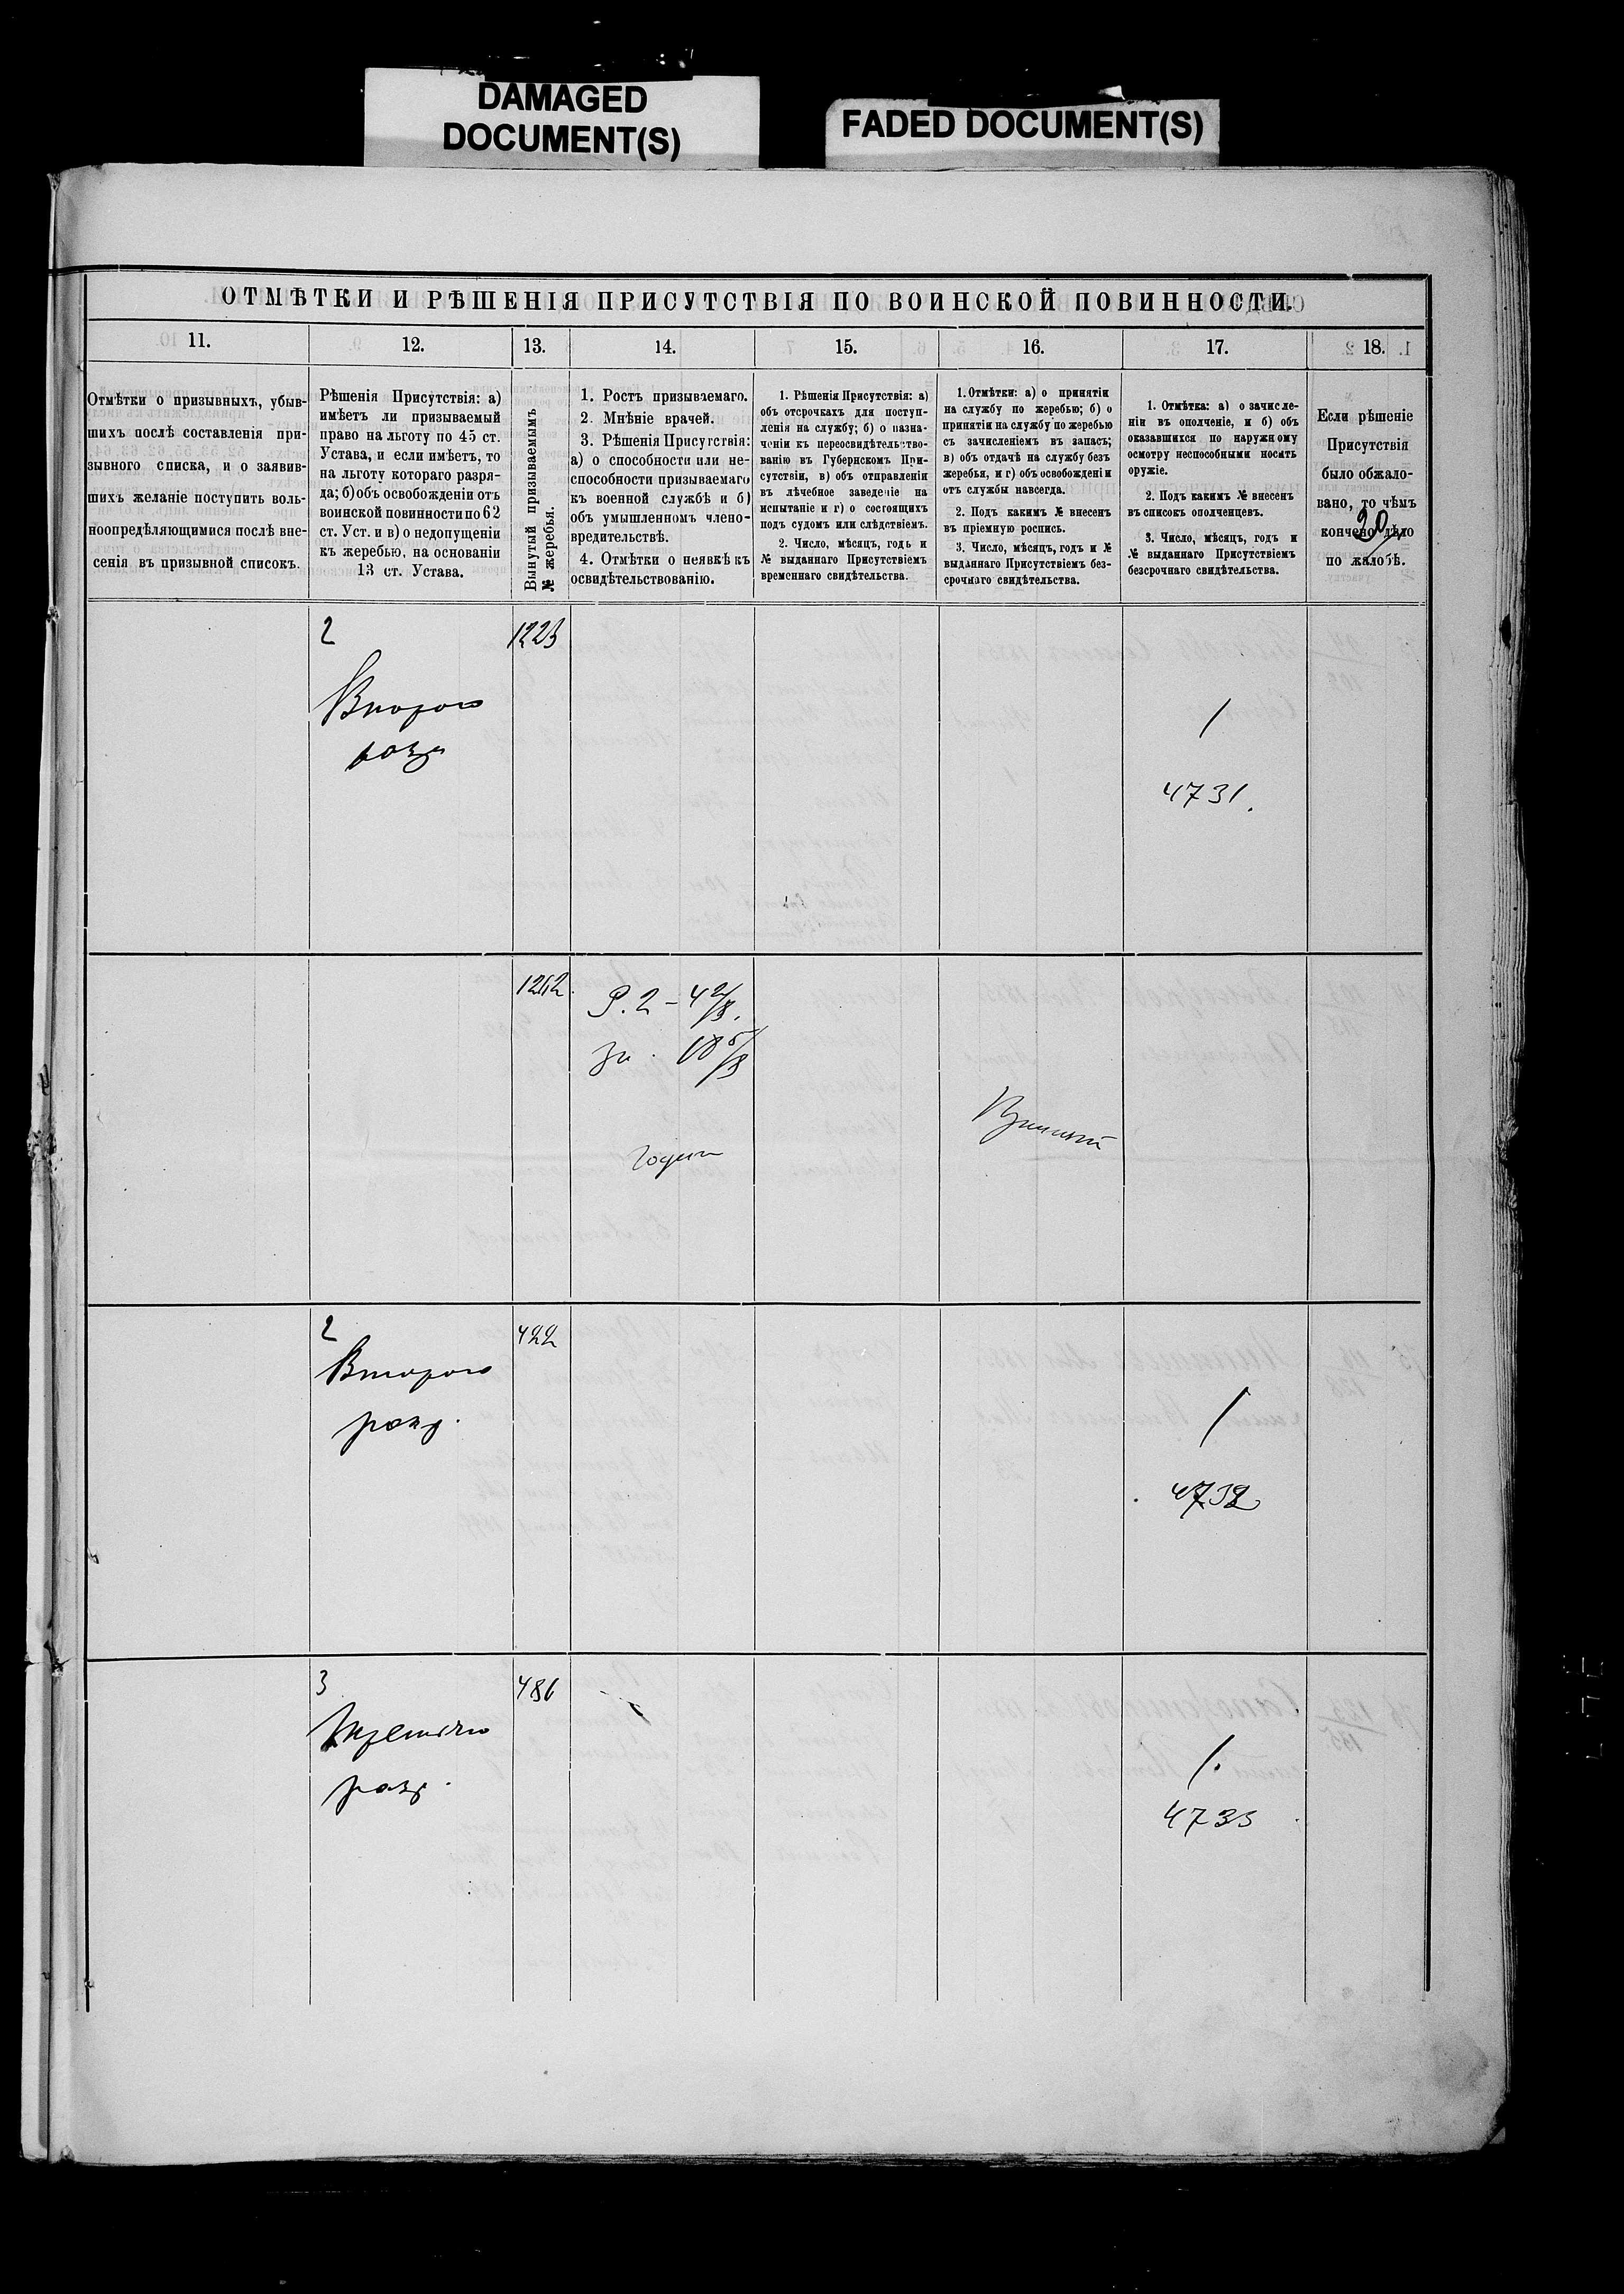 DAMAGED
DOCUMENT(S)
FADED DOCUMENT(S)
ОТМѢТКИ И РѢШЕНІЯ ПРИСУТСТВІЯ ПО ВОИНСКОЙ ПОВИННОСТИ.
11.
12.
13.
14.
15.
16.
17.
18.
Отмѣтки о призывныхъ, убыв-
шихъ послѣ составленія при-
зывного списка, и о заявив-
шихъ желаніе поступить воль-
ноопредѣляющимися послѣ вне-
сенія въ призывной списокъ.
Рѣшенія Присутствія: а)
имѣетъ ли призываемый
право на льготу по 45 ст.
Устава, и если имѣетъ, то
на льготу котораго разря-
да; б) объ освобожденіи отъ
воинской повинности по 62
ст. Уст. и в) о недопущеніи
къ жеребью, на основаніи
13 ст. Устава.
Вынутый призываемымъ
№ жеребья.
1. Ростъ призываемаго.
2. Мнѣніе врачей.
3. Рѣшенія Присутствія:
а) о способности или не-
способности призываемаго
къ военной службѣ и б)
объ умышленномъ члено-
вредительствѣ.
4. Отмѣтки о неявкѣ къ
освидѣтельствованію.
1. Рѣшенія Присутствія: а)
объ отсрочкахъ для поступ-
ленія на службу; б) о назна-
ченіи къ переосвидѣтельство-
ванію въ Губернскомъ При-
сутствіи, в) объ отправленіи
въ лѣчебное заведеніе на
испытаніе и г) о состоящихъ
подъ судомъ или слѣдствіемъ.
2. Число, мѣсяцъ, годъ и
№ выданнаго Присутствіемъ
временнаго свидѣтельства.
1. Отмѣтки: а) о принятіи
на службу по жеребью; б) о
принятіи на службу по жеребью
съ зачисленіемъ въ запасъ;
в) объ отдачѣ на службу безъ
жеребья, и г) объ освобожденіи
отъ службы навсегда.
2. Подъ какимъ № внесенъ
въ пріемную роспись.
3. Число, мѣсяцъ, годъ и №
выданнаго Присутствіемъ без-
срочнаго свидѣтельства.
1. Отмѣтка: а) о зачисле-
ніи въ ополченіе, и б) объ
оказавшихся по наружному
осмотру неспособными носить
оружіе.
2. Подъ какимъ № внесенъ
въ списокъ ополченцевъ.
3. Число, мѣсяцъ, годъ и
№ выданнаго Присутствіемъ
безсрочнаго свидѣтельства.
Если рѣшеніе
Присутствія
было обжало-
вано, то чѣмъ
кончено дѣло
по жалобѣ.
20
2
1223
Второго
разр
/
4731.
1242.
Р. 2 – 4 2/8.
годенъ
2
422
Второго
разр.
/
4732
3
486
Третьяго
разр.
/.
4733